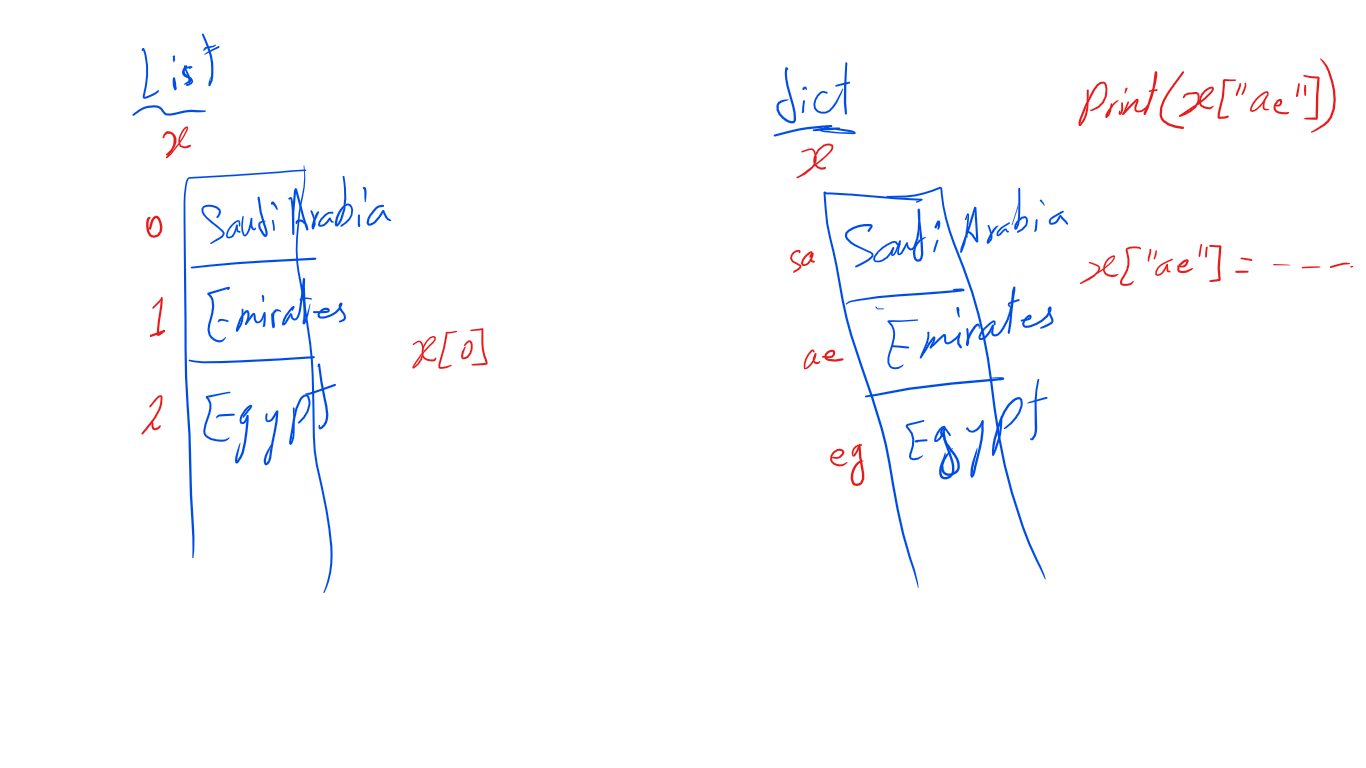 List
x
0 Saudi Arabia
1 Emirates
2 Egypt
x[0]
dict
x
sa Saudi Arabia
ae Emirates
eg Egypt
Print(x["ae"])
x["ae"] = ----